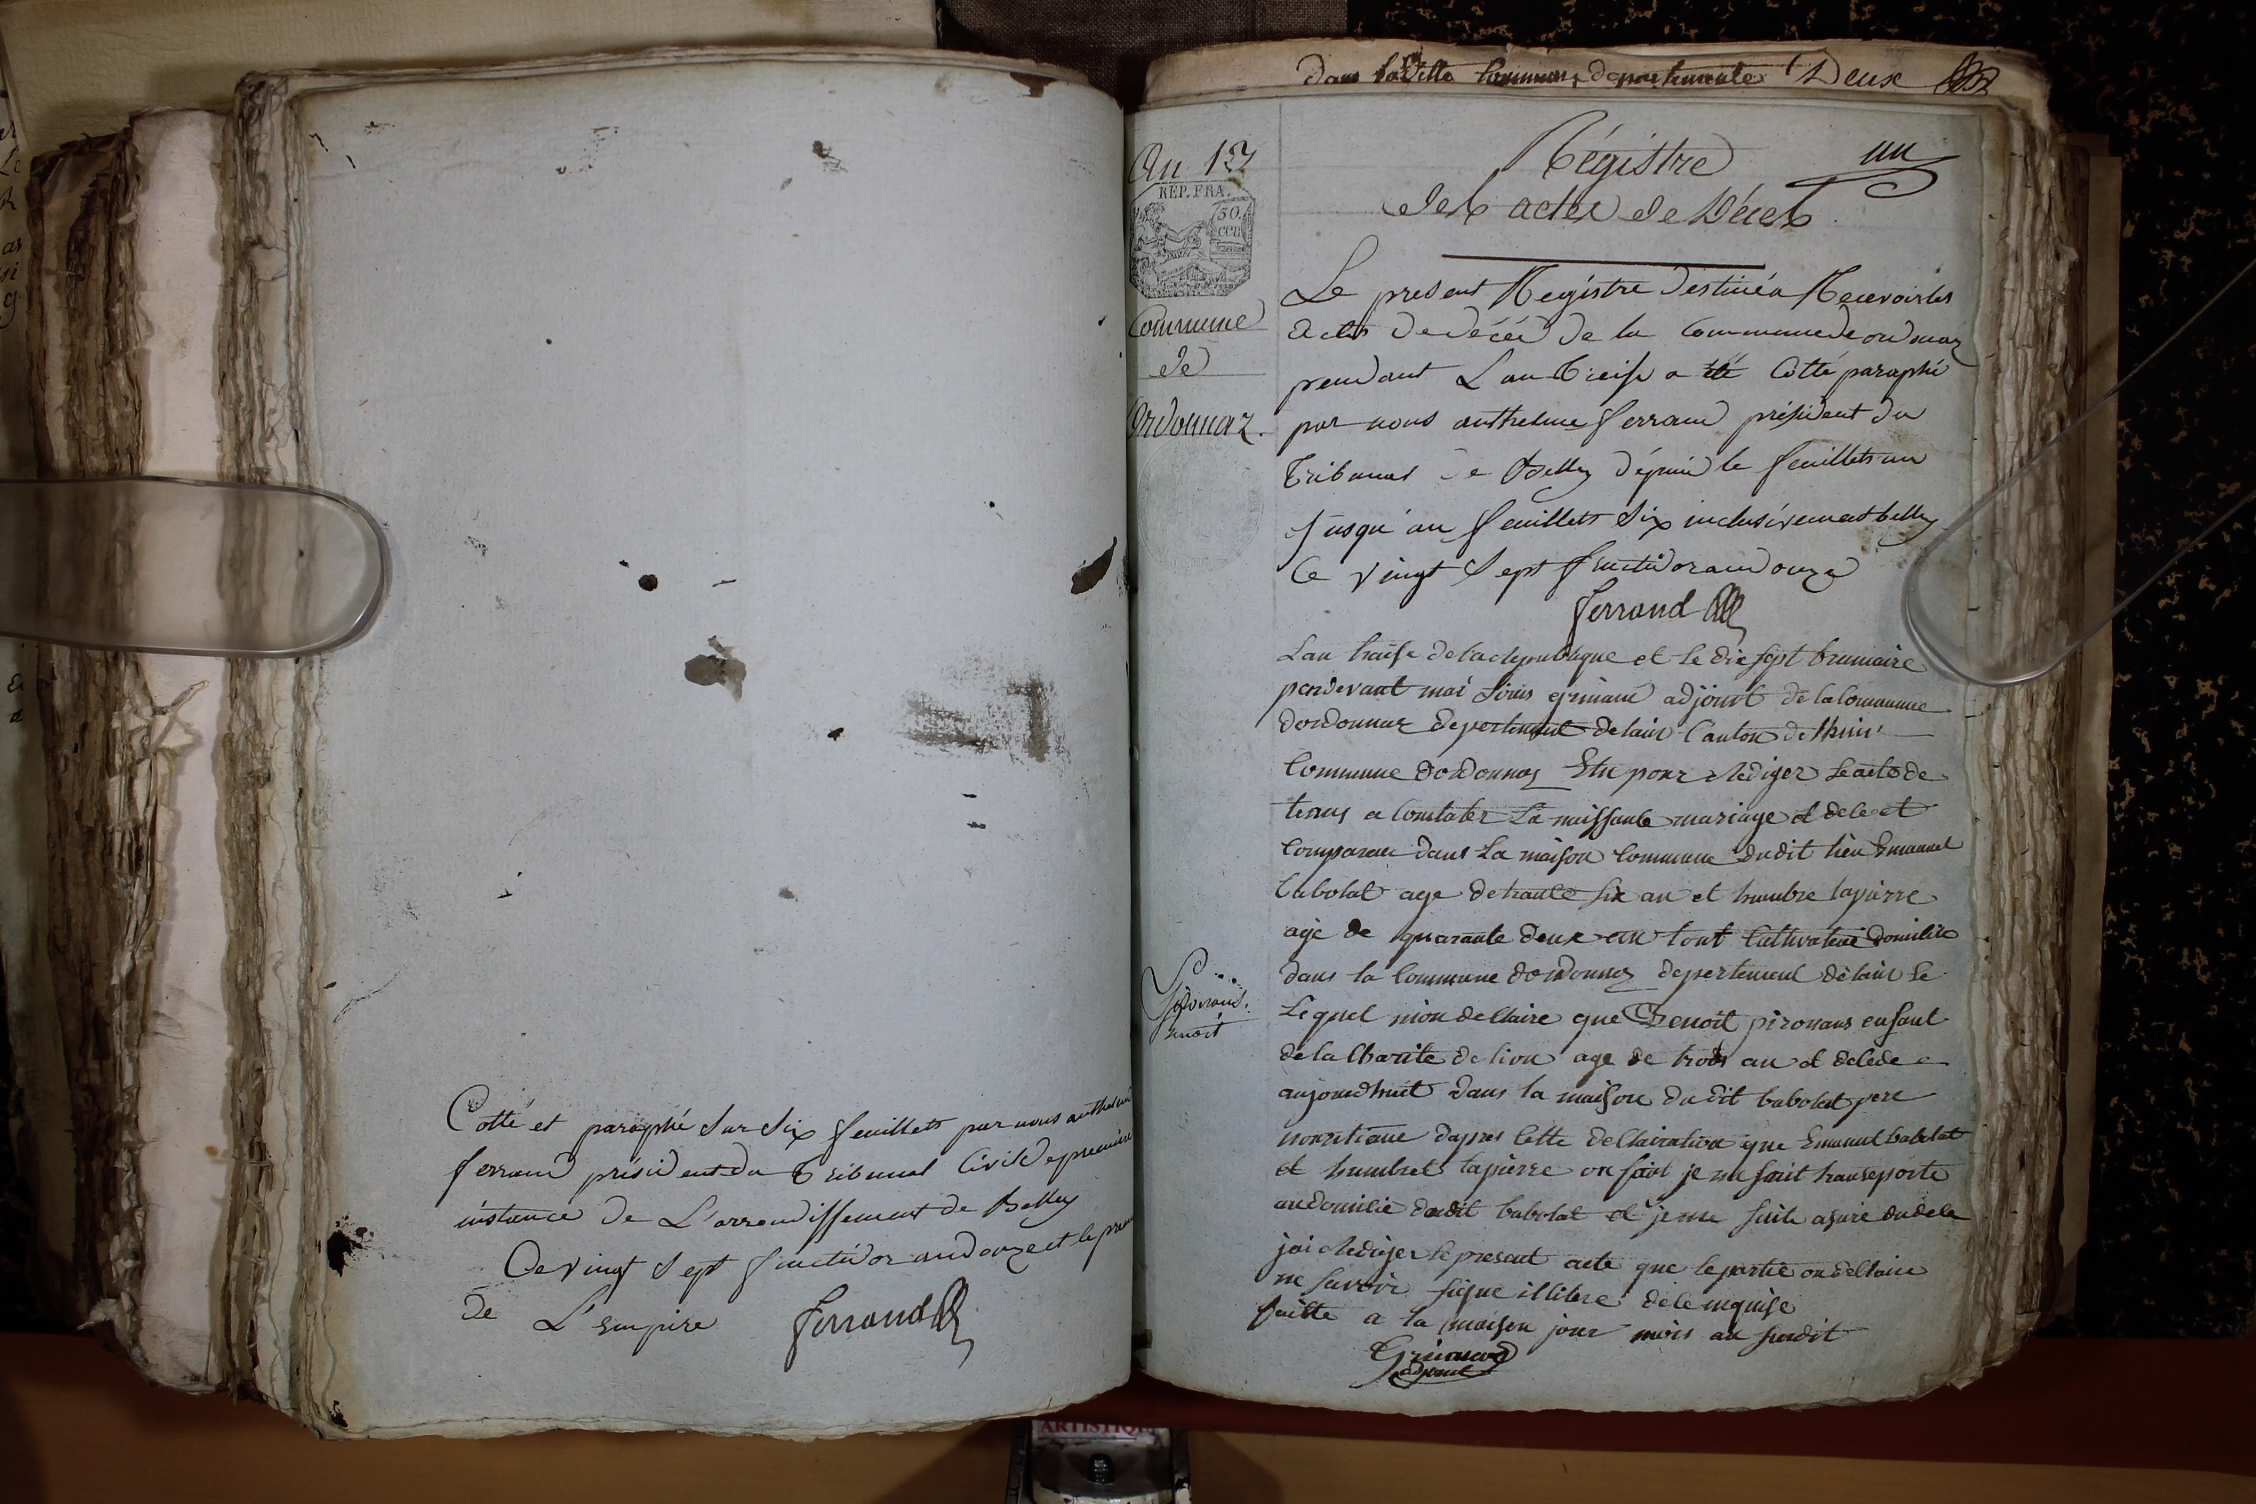 Cotté et paraphé sur six feuillets par nous anthelme
ferrand président du tribunal Civil de premiere
instance de L'arrondissement de Belley
Ce vingt sept fructidor an douze et le prem
de L'empire ferrand
dans la ditte Commune departemente Deux
An 13
REP. FRA.
50
cen
Commune
de
Ordonnaz.
un
Régistre
des actes de Décès
Le present Regístre destiné a Recevoir les
actes de décès de la Commune de ordonaz
pendant L'an treise a été Cotté paraphé
par nous anthelme ferrand président du
Tribunal de Belley dépuis le feuillets un
Jusqu'au feuillets six inclusívement belley
Ce vingt sept fructidor an douze
ferrand
Lan traise de la republique et le dis sept brumaire
pardevant moi adjoint de la Commune
dordonnaz depertement delain Canton de
Commune dordonnaz Elu pour rediger le acte de
a Constater La naissance mariage et dele et
Comparau dans La maison Commune dudit lieu Emanuel
babolat age de trante six an et humbre lapierre
age de quarante deux an tout Cultivateur domilie
dans la Commune dordonnaz depertement delain le
Lequel mon dellaire que Benoit pironans enfant
de la Charite de lion age de trois an et delede
aujourdhuit dans la maison du dit babolat pere
nouritieue dapres Cette dellairation que Emanuel babolat
et humbret lapierre on fait je me sait transeporte
au domilie dudit babolat et je me suit asure du dele
jai rediger le presant acte que le partie on dellaire
ne savoir signe illibre dele inquise
faitte a la maison jour mois an surdit
Grimaud
adjoint
Pironans
benoit